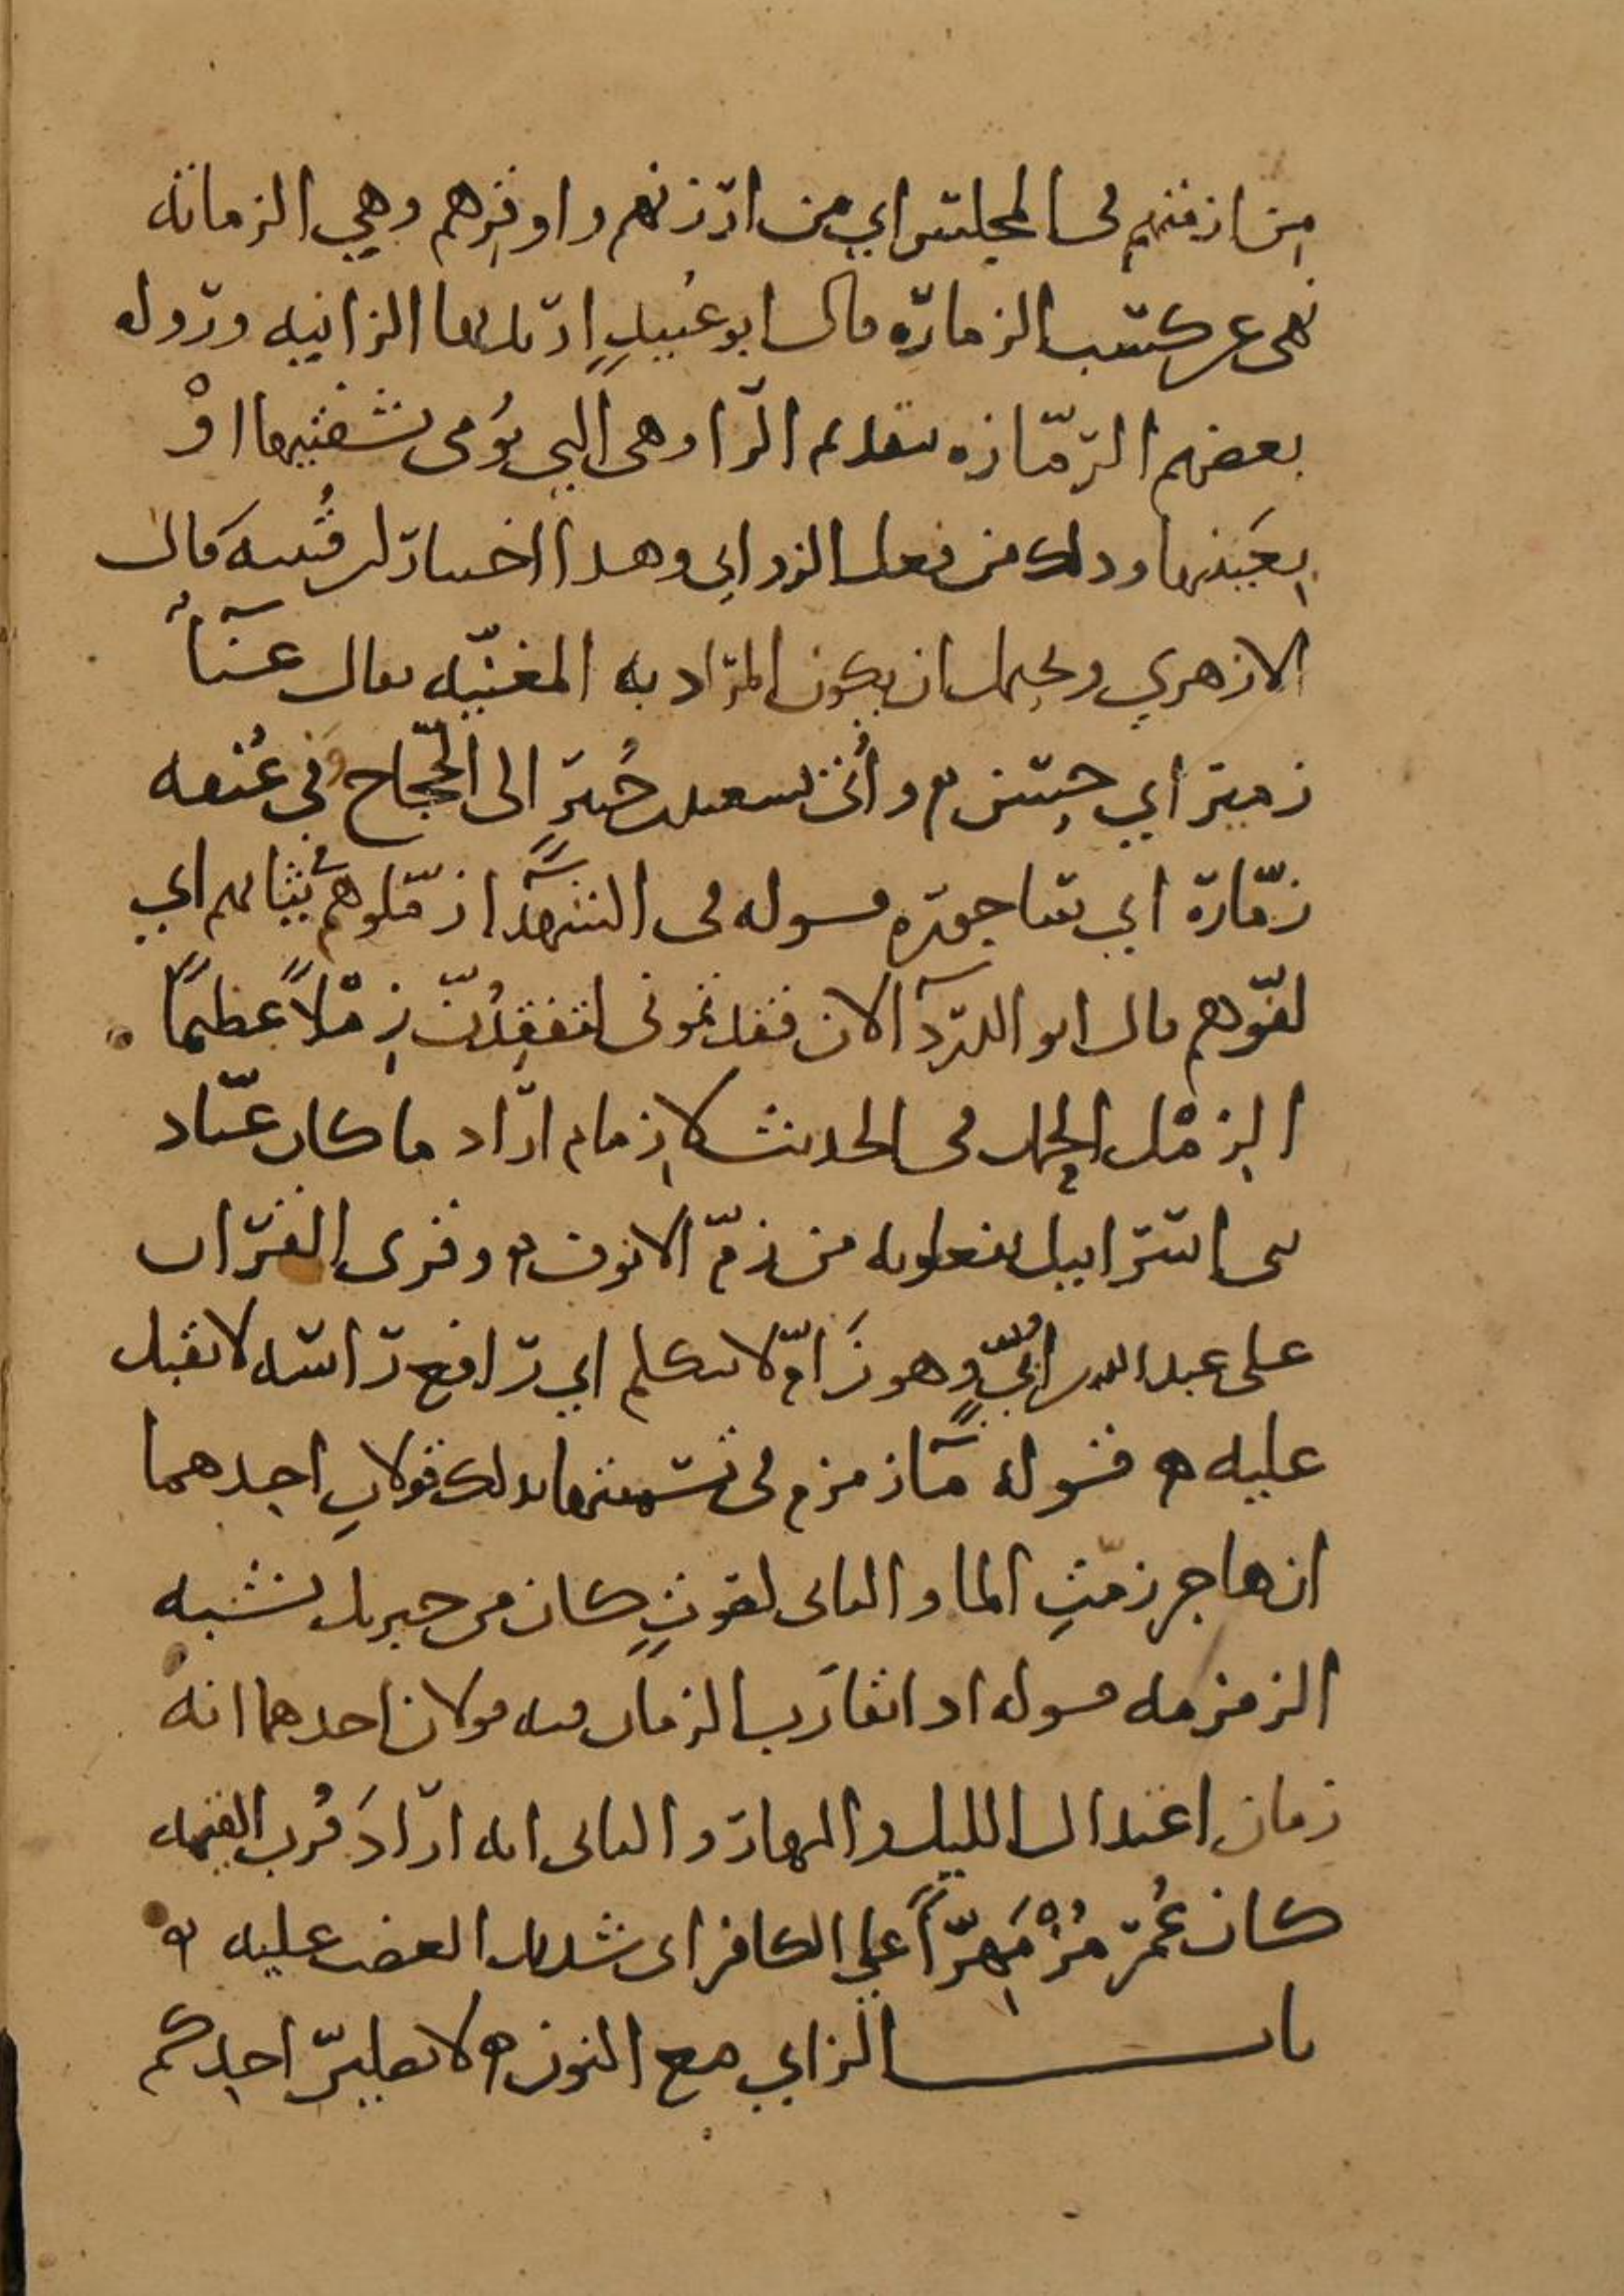 من ازمتهم في المجلس اي من ارزنهم واوقرهم وهي الزمانه
نهى عن كسب الزمارة قال ابو عبيد اربد بها الزانيه ورواه
بعضهم الرمّازه بتقديم الرا وهي التي تومي بشفتيها اوْ
بعَينيها وذلك من فعل الزواني وهذا اختيار ابن قُتيبهَ قال
الازهري ويحتمل ان يكون المراد به المغنّيه يقال غنآءٌ
زمير اي حسن وأُتي بسعيد بن جُبيرٍ الى الحجّاح وفي عُنقه
زمّارة اي ساجور قوله في الشهدآ زمّلوهم بثيابهم اي
لفّوهم قال ابو الدردآ لان فقدتموني لتفقِدُنّ زِمْلاً عظيمًا
الزِمْل الحِمل في الحديث لا زِمام اراد ما كان عبّاد
بني اسرائيل يفعلونه من زمّ الانوف وقرى القرآن
على عبد الله بن ابيٍّ وهو زَامّ لا يتكلم اي رافع راسه لا يقبل
عليه قوله مآ زمزم في تسميتها بذلك قولانِ احدهما
ان هاجر زمّتِ الما والثاني لصوتٍ كان من جبريل يشبه
الزمزمه قوله اذا تقارَب الزمان فيه قولان احدهما انهُ
زمان اعتدال الليل والنهار والثاني انه ارادَ قُرب القيمه
كان عُمر مُزْمَهِرّاً على الكافر اي شديد الغضب عليه
باب الزاي مع النون لا يصلينّ احدكم